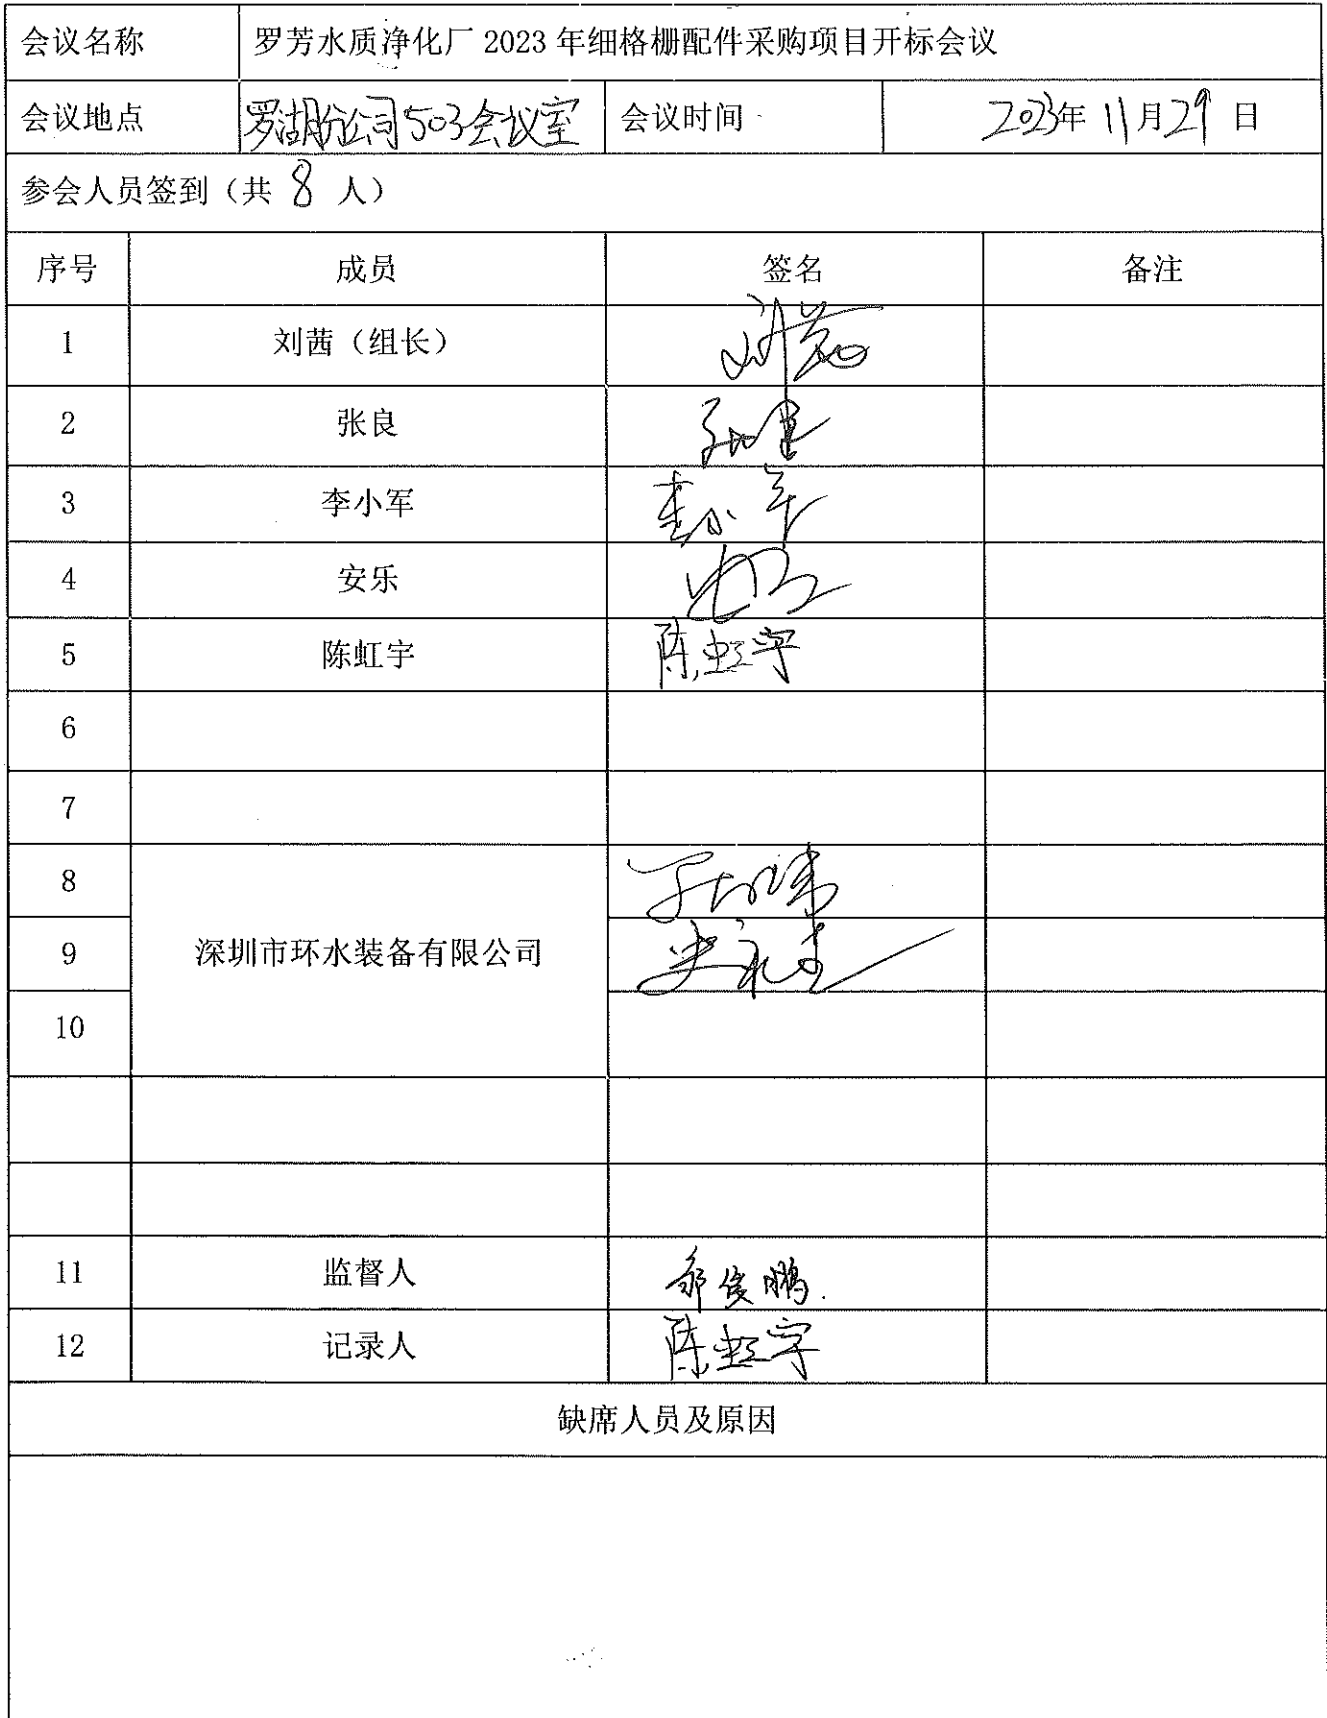 会议名称 罗芳水质净化厂 2023 年细格栅配件采购项目开标会议
会议地点 罗湖分公司503会议室 会议时间 2023年 11月29 日
参会人员签到（共 8 人）
序号 成员 签名 备注
1 刘茜（组长） 刘茜
2 张良
3 李小军 李小军
4 安乐 安乐
5 陈虹宇 陈虹宇
6
7
8
9 深圳市环水装备有限公司
10
11 监督人
12 记录人 陈虹宇
缺席人员及原因